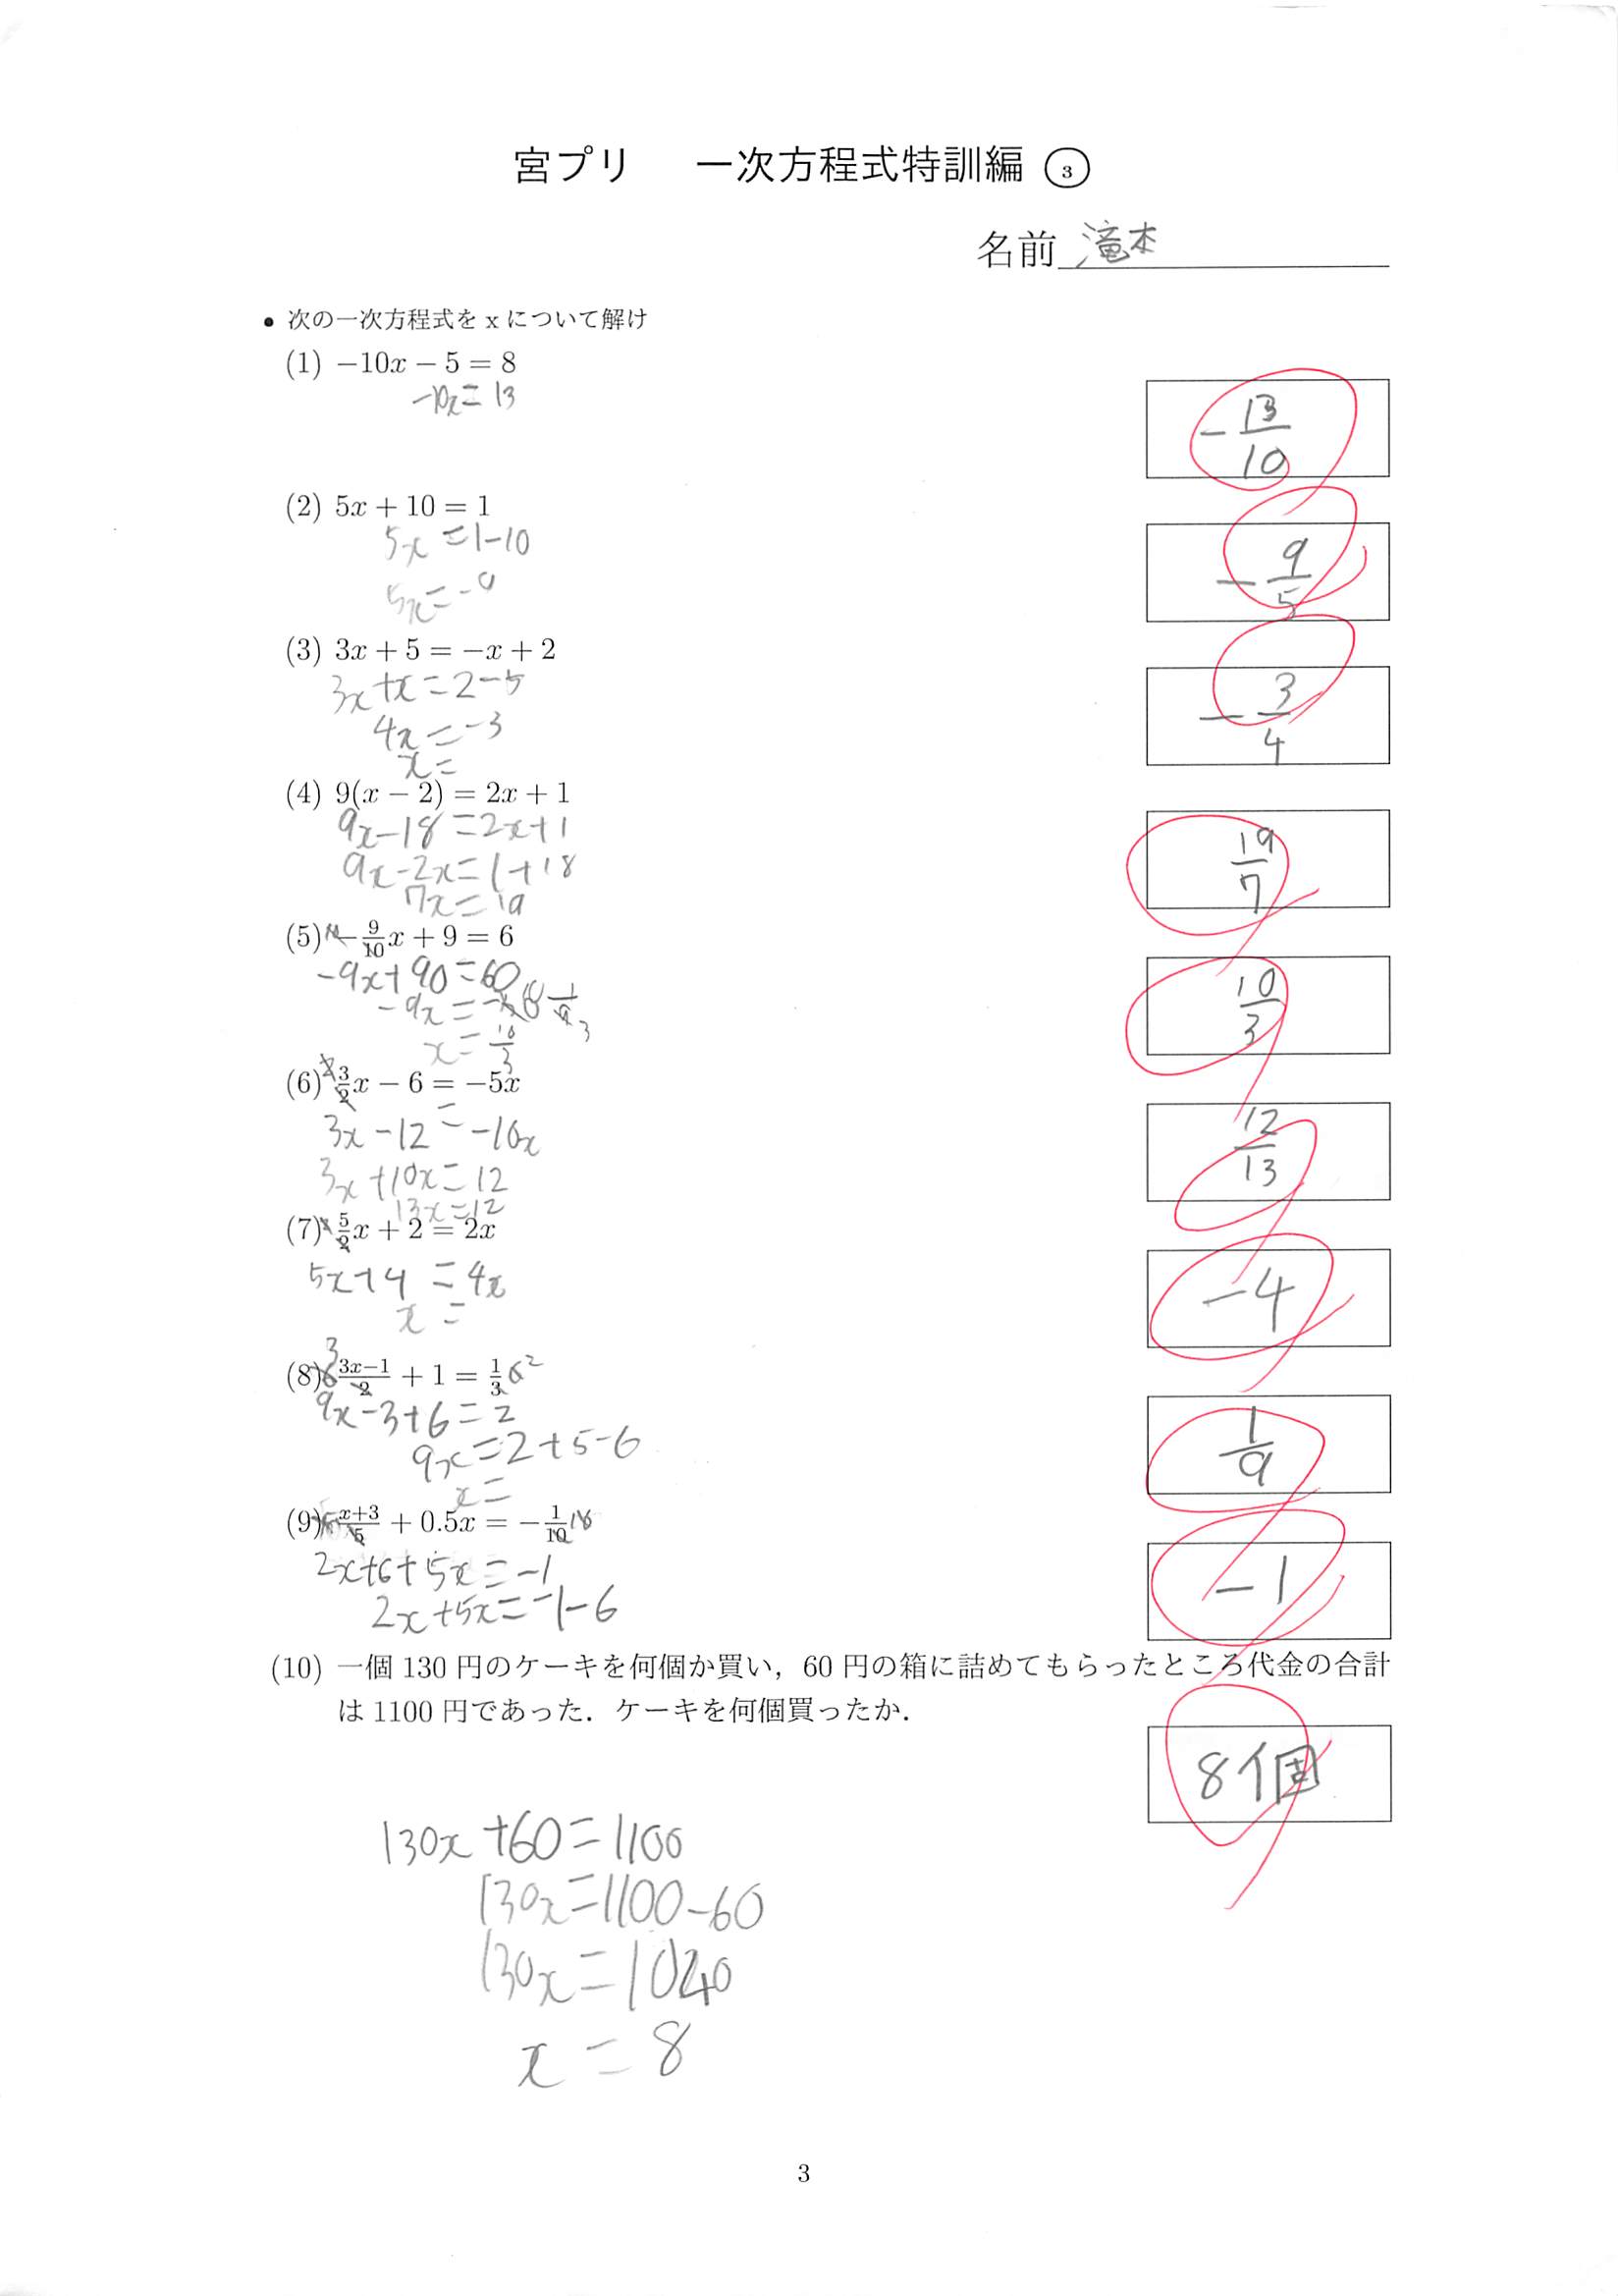 宮プリ 一次方程式特訓編 ③
名前 滝本
• 次の一次方程式を x について解け
(1) −10x − 5 = 8
−10x = 13
−13/10
(2) 5x + 10 = 1
5x = 1−10
5x = −9
−9/5
(3) 3x + 5 = −x + 2
3x+x = 2−5
4x = −3
x =
−3/4
(4) 9(x − 2) = 2x + 1
9x−18 = 2x+1
9x−2x = 1+18
7x = 19
19/7
(5) −9/10x + 9 = 6
−9x+90 = 60
−9x =
x = 10/3
10/3
(6) 3/2x − 6 = −5x
3x−12 = −10x
3x+10x = 12
13x = 12
12/13
(7) 5/2x + 2 = 2x
5x+4 = 4x
x =
−4
(8) 3x−1/2 + 1 = 1/3
9x−3+6 = 2
9x = 2+5−6
x =
1/9
(9) x+3/5 + 0.5x = −1/10
2x+6+5x = −1
2x+5x = −1−6
−1
(10) 一個 130 円のケーキを何個か買い，60 円の箱に詰めてもらったところ代金の合計
は 1100 円であった．ケーキを何個買ったか．
8個
130x+60 = 1100
130x = 1100−60
130x = 1040
x = 8
3